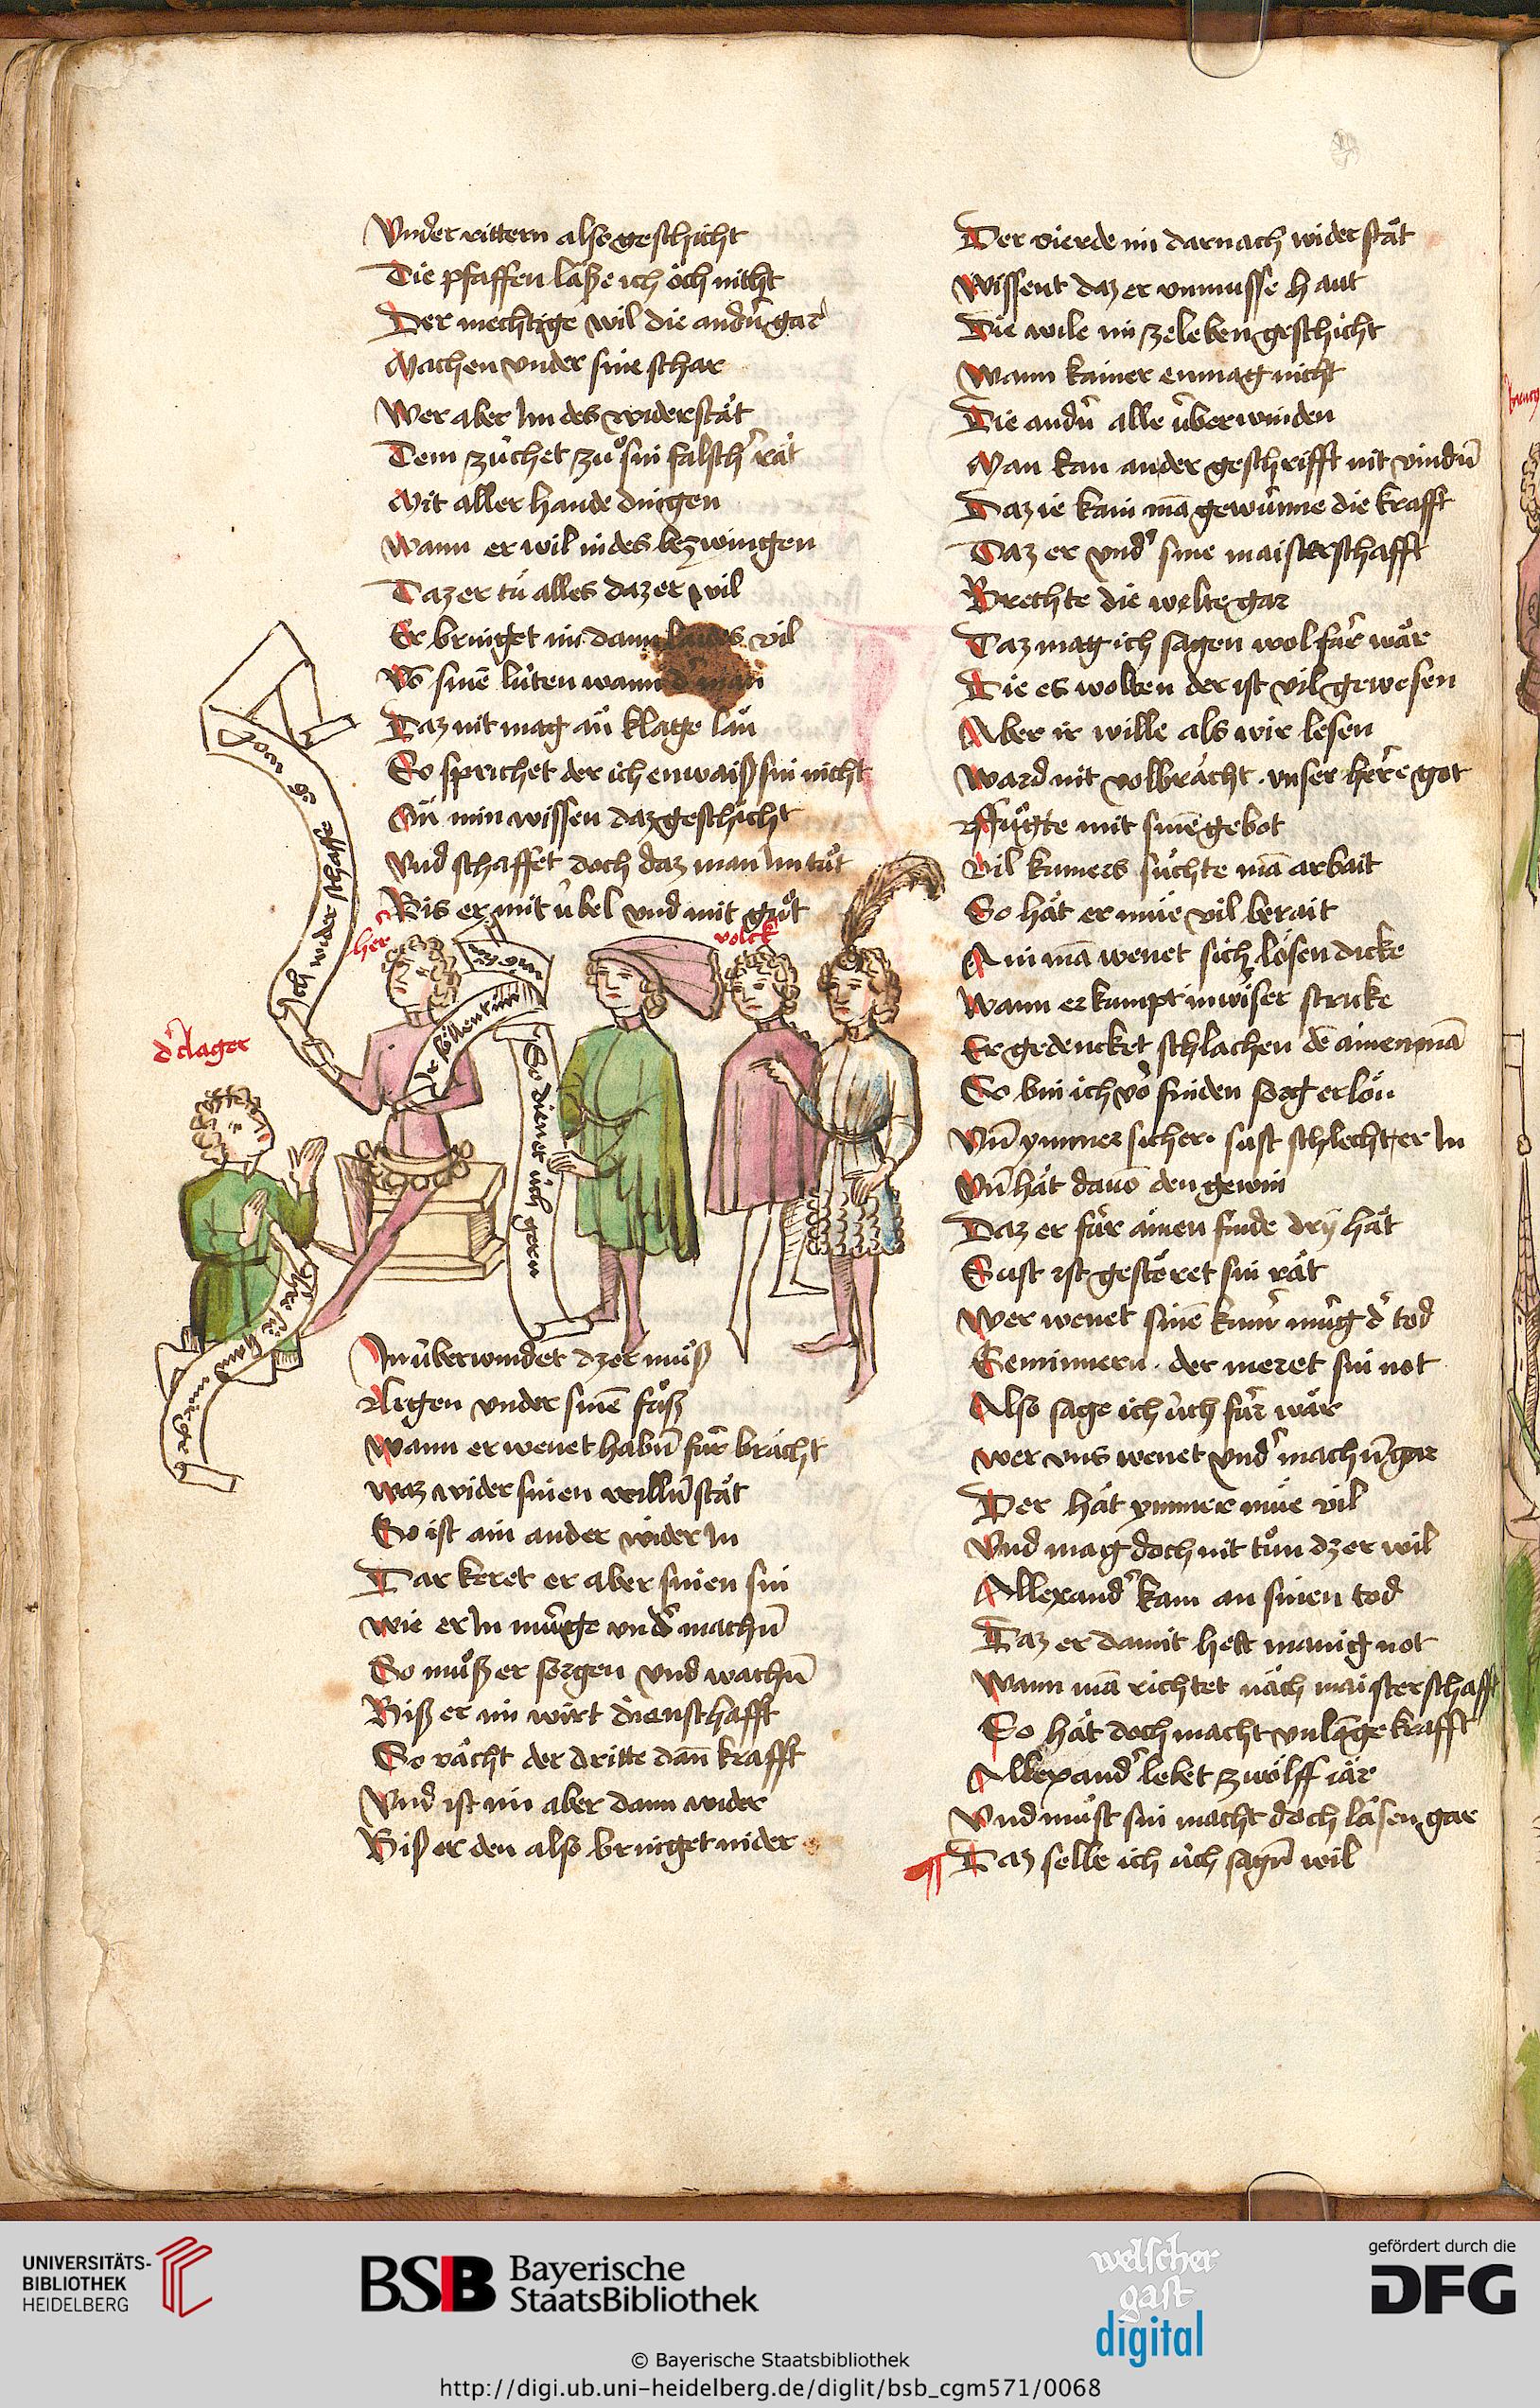 Vnder rittern also geschicht
Die pfaffen läsze ich öch nitht
Der mechtige wil die andn̄ gar
Machen vnder sine schar
Wer aber Im des widerstät
Dem zúchet zuͦ sin falsch' rät
Mit aller hande dingen
Wann er wil in des bezwingen
Daz er tuͤ alles daz er wil
Er bringet im dann laides vil
Vō sinē lúten wann d' man
Daz nit mag än klage län
So sprichet der ich enwaiß sin nicht
An min wissen daz geschicht
Vnd schaffet doch daz man Im tuͦt
Bis er mit úbel vnd mit guͦt
her
volck
d' clager
Ich wider schaffe
Ir söllent im
So dienet úch gern
In úberwindet dz er muͦß
Ligen vnder sinē fuͦß
Wann er wenet habn̄ fúr bracht
waz wider sinen willn̄ stät
So ist ain ander wider In
Dar keret er aber sinen sin
wie er In múge vnd' machn̄
So muͦß er sorgen vnd wachn̄
Biß er im wirt dienschafft
So vächt der dritte dan̄ krafft
Vnd ist im aber dann wider
Biß er den also bringet nider
Der vierde im darnach wider stät
Wissent daz er vnmusse haut
Die wile im ze leben geschicht
Wann kainer enmag nicht
Die andn̄ alle úberwinden
Man kan an der geschrifft nit vindn̄
Daz ie kain mā gewúnne die krafft
Daz er vnd' sine maisterschafft
Brechte die welte gar
Daz mag ich sagen wol fúr wär
Die es wolten der ist vil gewesen
Aber ir wille als wir lesen
Ward nit volbrächt . vnser herre got
Fuͤgte mit sinē gebot
Vil kumers suͦchte mā arbait
So hät er muͤe vil berait
Ain mā wenet sich lösen dicke
Wann er kumpt in wiser stricke
Er gedencket schlachen dē ainen mā
So bin ich vō finden sorg erlön
Vn̄ ymmer sicher . sust schlecht er In
Vn̄ hät dauō den gewin
Daz er fúr ainen finde dry hät
Sust ist gestöret sin rät
Wer wenet sinē kumr múg d' tod
Geminnern . der meret sin not
Also sage ich úch fúr wär
wer vns wenet vnd' machn̄ gar
Der hät ymmer muͤe vil
Vnd mag doch nit tuͦn dz er wil
Allexand' kam an sinen tod
Daz er damit hett manig not
Wann mā richtet näch maisterschafft
So hät doch macht vnlāge krafft
Allexand' lebet zwölff iär
Vnd muͦst sin macht doch läsen gar
¶ Daz selbe ich úch sagn̄ wil
UNIVERSITÄTS-
BIBLIOTHEK
HEIDELBERG
BSB Bayerische
StaatsBibliothek
welscher
gast
digital
gefördert durch die
DFG
© Bayerische Staatsbibliothek
http://digi.ub.uni-heidelberg.de/diglit/bsb_cgm571/0068